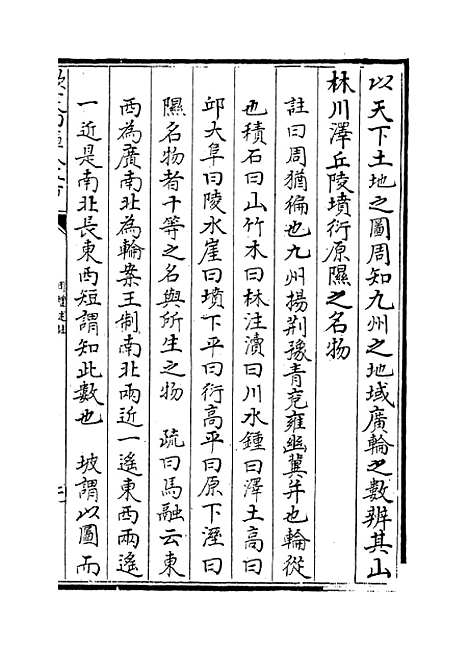 以天下土地之圖周知九州之地域廣輪之數辨其山
林川澤丘陵墳衍原隰之名物
註曰周猶徧也九州揚荆豫青兖雍幽冀并也輪從
也積石曰山竹木曰林注瀆曰川水鍾曰澤土高曰
邱大阜曰陵水崖曰墳下平曰衍高平曰原下溼曰
隰名物者十等之名與所生之物　疏曰馬融云東
西為廣南北為輪案王制南北兩近一遙東西兩遙
一近是南北長東西短謂知此數也　坡謂以圖而